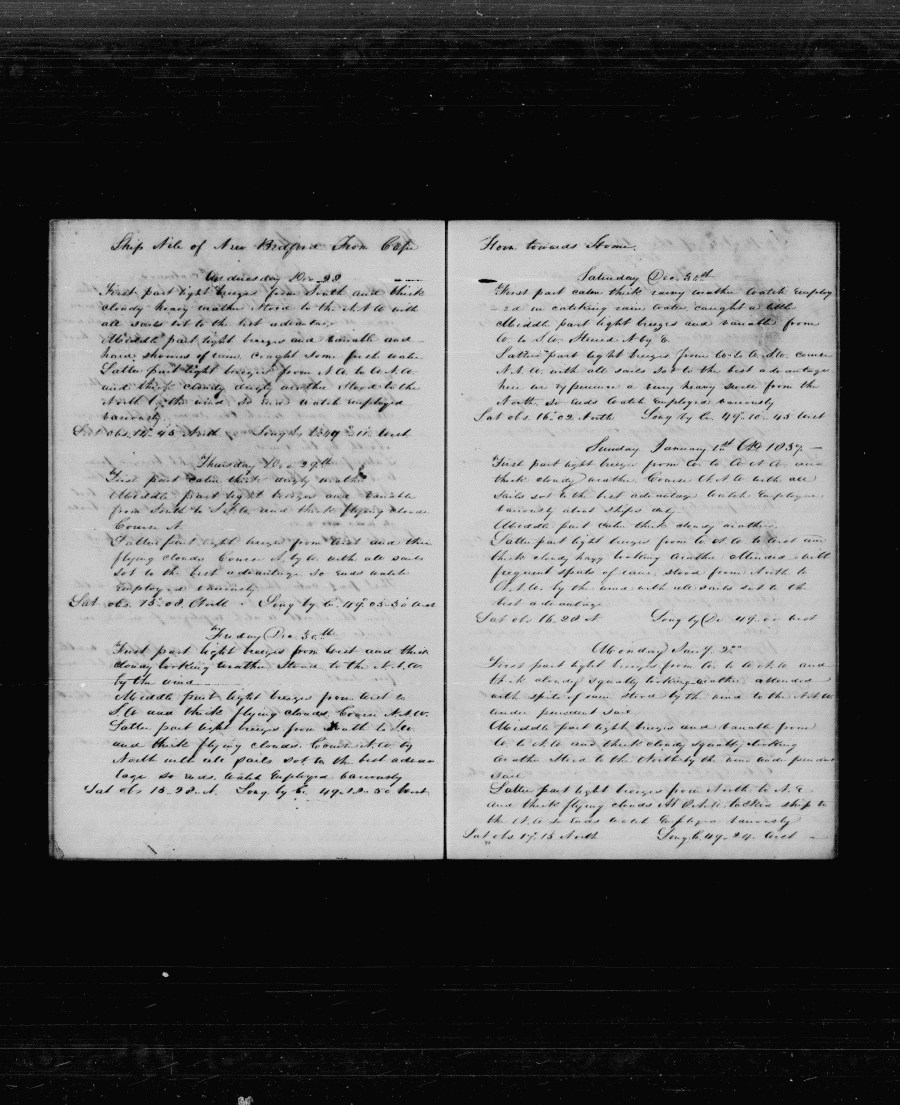 Ship Nile of New Bedford From Cape
Wednesday Dec 28
First part light breezes from South and thick
cloudy heavy weather Stood to the N.N.W with
all sails set to the best advantage
Middle part light breezes and variable and
hard showers of rain Caught some fresh water
Latter part light breezes from N.W. to W.N.W.
and thick cloudy weather Stood to the
North by the wind so ends watch employed
variously
Lat obs 14-45 North Long by 49 11 West
Thursday Dec 29th
First part calm thick weather
Middle part light breezes and variable
from South to and thick flying clouds
Course N.
Latter part light breezes from West and thin
flying clouds Course N. by W. with all sails
set to the best advantage so ends watch
employed variously
Lat obs 15-08 North Long by C. 49-05-30 West
Friday Dec 30th
First part light breezes from West and thick
cloudy looking weather Stood to the N.N.W.
by the wind
Middle part light breezes from West to
S.W and thick flying clouds. Course N.N.W.
Latter part light breezes from South to S.W.
and thick flying clouds. Course N.W by
North with all sails set to the best advan
tage so ends. Watch employed variously
Lat obs 15-28 N. Long by C. 49-12-30 West
Horn towards Home.
Saturday Dec. 3 th
First part calm thick rainy weather watch employ
-ed in catching rain water caught a little
Middle part light breezes and variable from
W. to S.W. Steered N by E.
Latter part light breezes from W. to W.S.W. course
N.N.W. with all sails set to the best advantage
here we experience a very heavy swell from the
North. so ends watch employed variously
Lat obs 16-02 North Long by C. 49-10-45 West
Sunday January 1st AD 1837
First part light breezes from W. to W.N.W. and
thick cloudy weather. Course N.N.W with all
sails set to the best advantage watch employed
variously about ships duty
Middle part calm thick cloudy weather.
Latter part light breezes from W.N.W. to West and
thick cloudy hazy looking weather attended with
frequent spats of rain, stood from North to
N.N.W by the wind with all sails set to the
best advantage
Lat obs 16-28 N Long by C. 49-00 West
Monday Jan'y. 2nd
First part light breezes from W. to W.N.W. and
thick cloudy squally looking weather attended
with spits of rain stood by the wind to the N.N.W
under prudent sail
Middle part light breezes and variable from
W. to N.W. and thick cloudy squally looking
weather Stood to the North by the wind under prudent
sail
Latter part light breezes from North to N.E.
and thick flying clouds At tacked ship to
the N.W. so ends watch employed variously
Lat obs 17-13 North Long C. 49-24. West